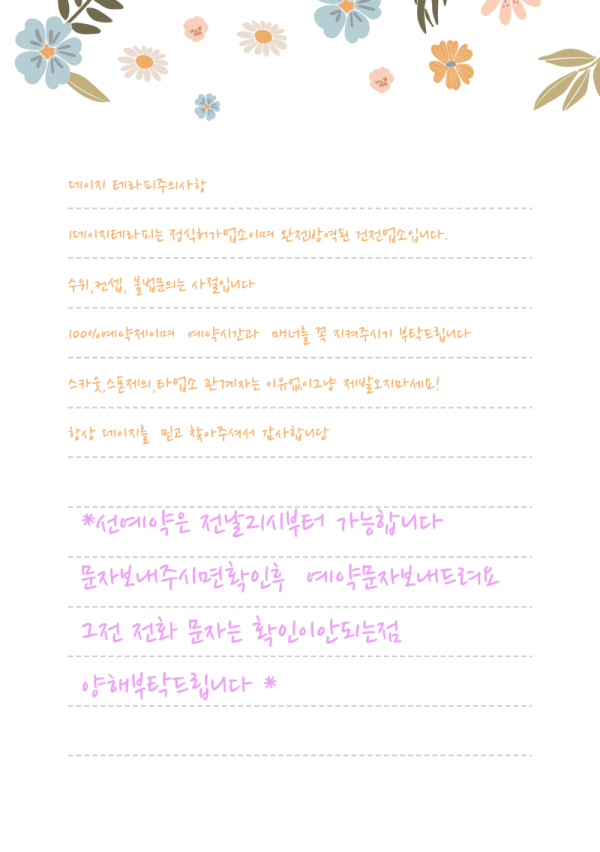 데이지 테라피주의사항
1데이지테라피는 정식허가업소이며 완전방역된 건전업소입니다.
수위,컨셉, 불법문의는 사절입니다
100%예약제이며 예약시간과 매너를 꼭 지켜주시기 부탁드립니다
스카웃,스폰제의,타업소 관계자는 이유없이그냥 제발오지마세요!
항상 데이지를 믿고 찾아주셔서 감사합니당
*선예약은 전날21시부터 가능합니다
문자보내주시면확인후 예약문자보내드려요
그전 전화 문자는 확인이안되는점
양해부탁드립니다 *